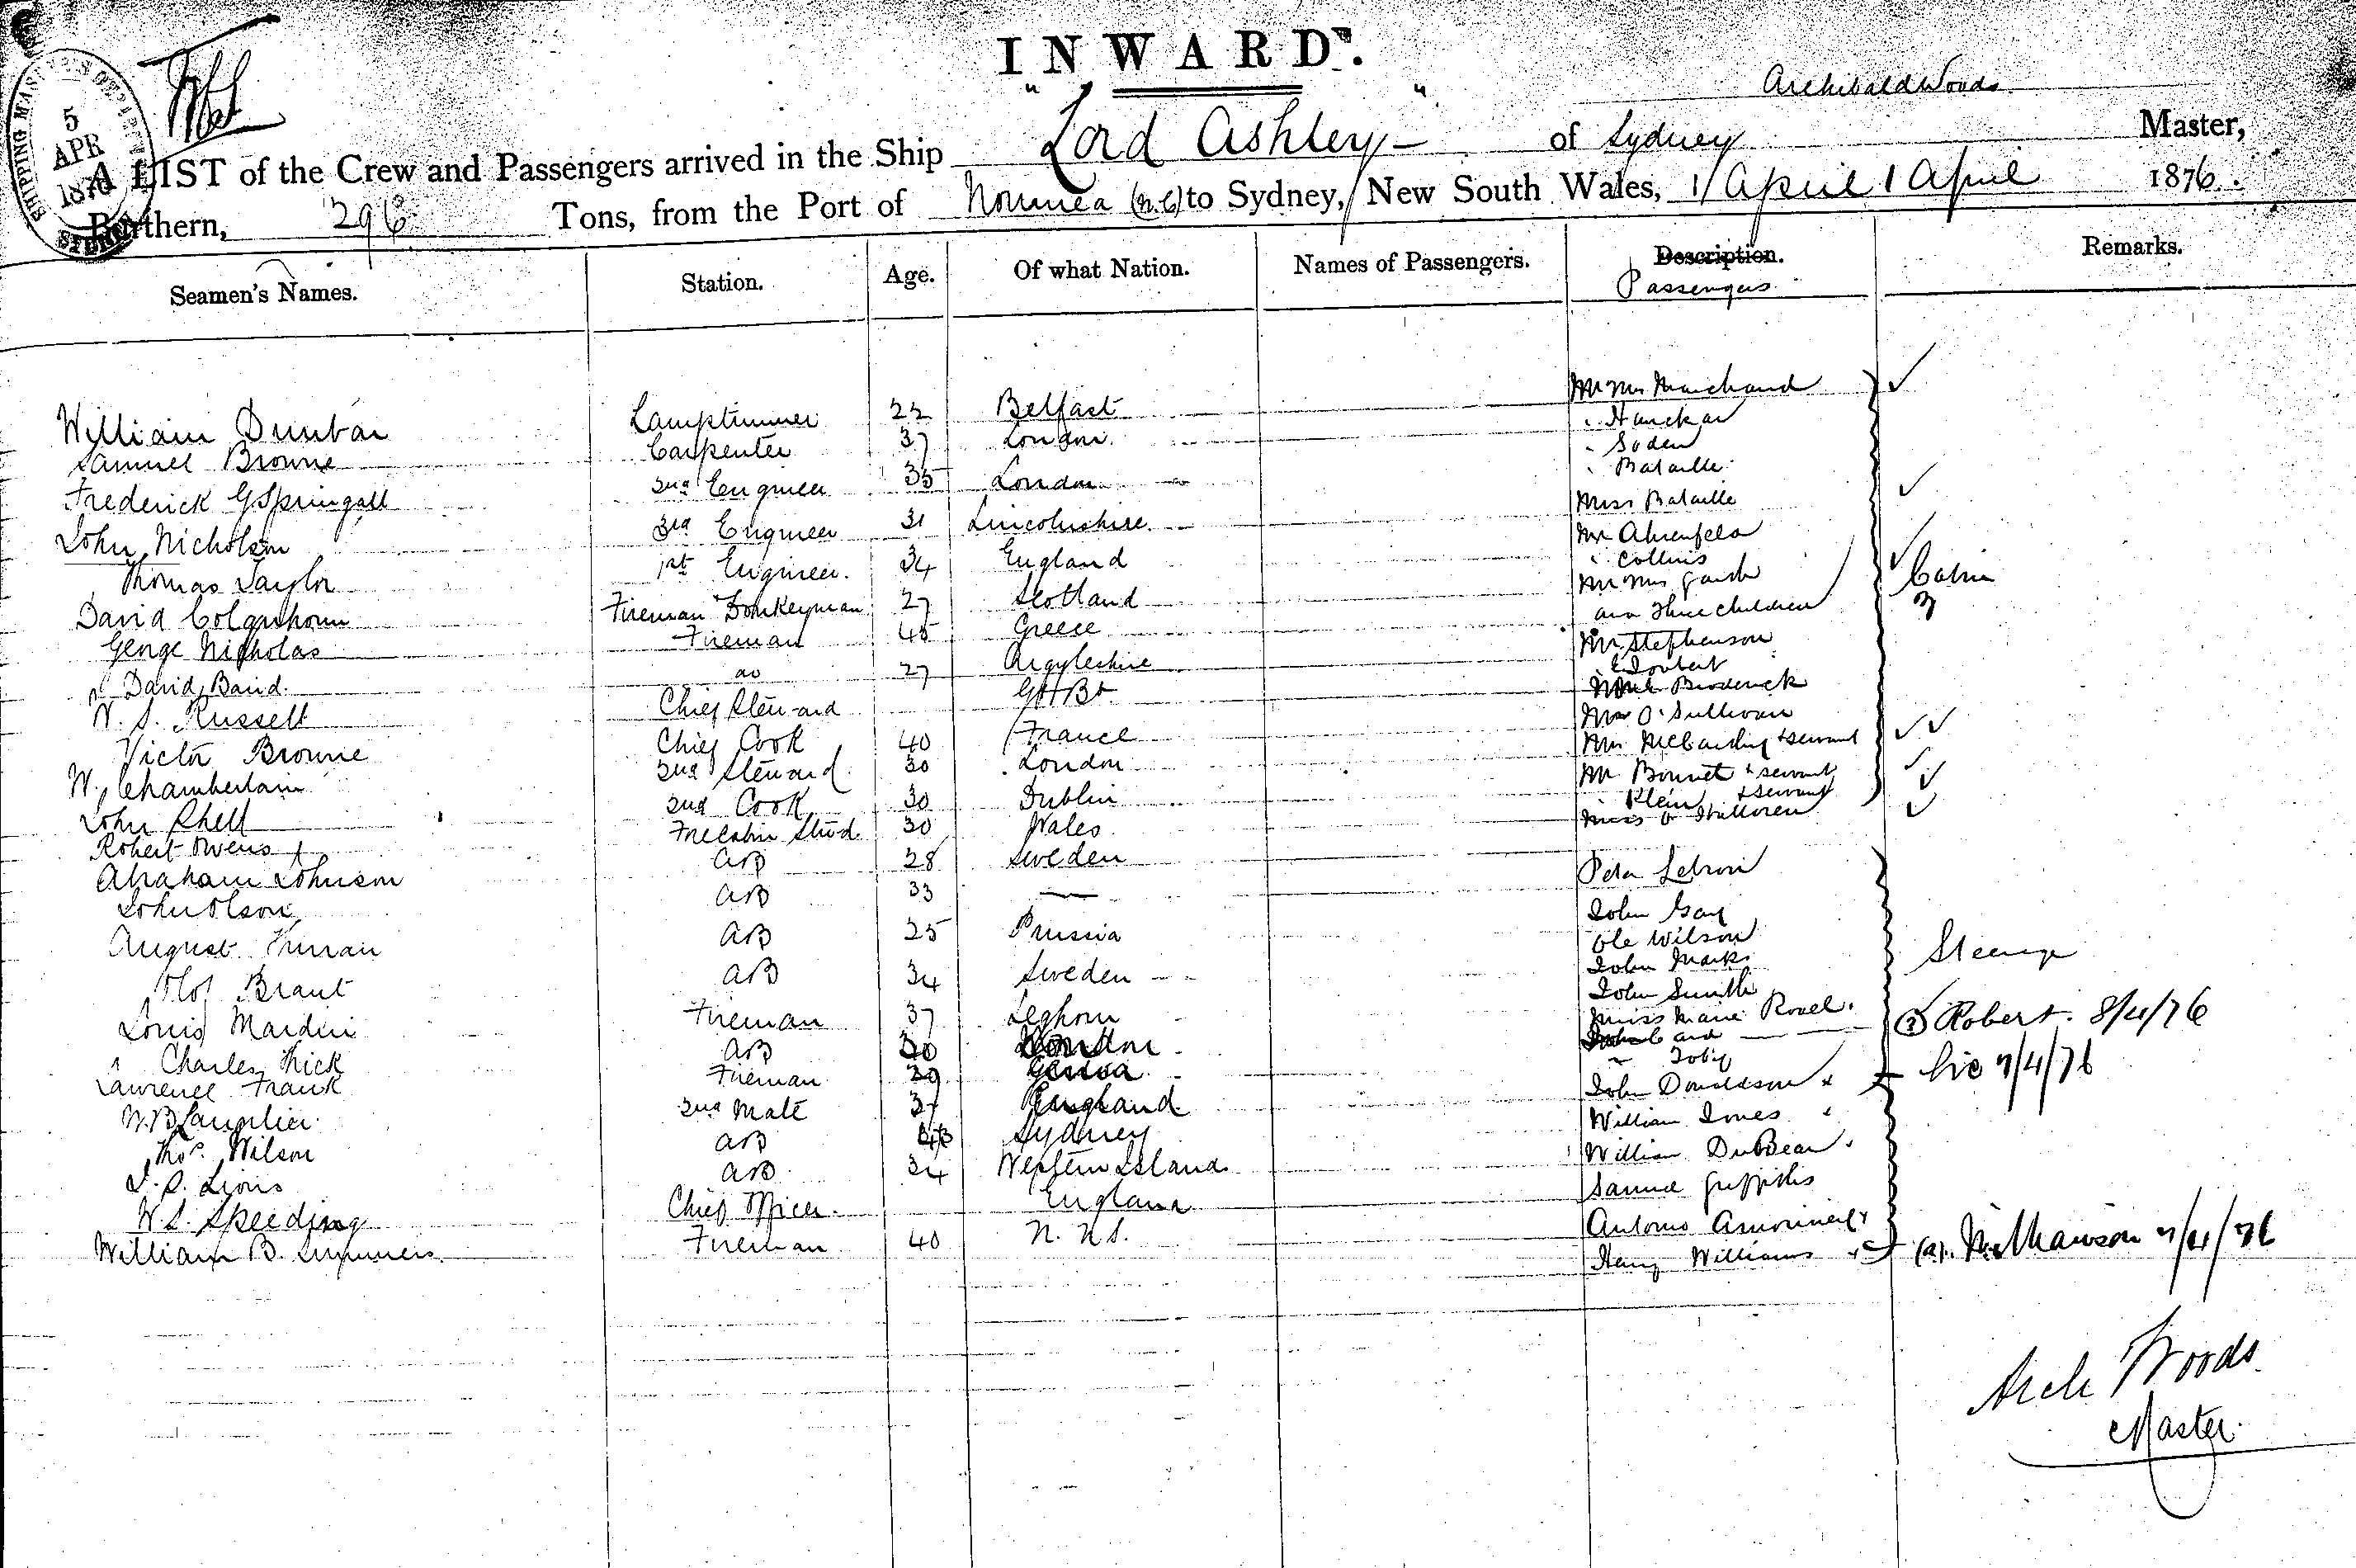 INWARD.
Archibald Woods
A LIST of the Crew and Passengers arrived in the Ship "Lord Ashley" of Sydney Master,
Burthern, 296 Tons, from the Port of Noumea (N.C) to Sydney, New South Wales, 1 April 1 April 1876.
SHIPPING MASTER'S
5
APR
1876
Seamen's Names. Station. Age. Of what Nation. Names of Passengers. Description. Remarks.
Passengers
Mr Mrs Marchand
William Dunbar Lamptrimmer 22 Belfast
Samuel Browne Carpenter 37 London Soden
Frederick G Springall 2nd Engineer 35 London Bataille
John Nicholson 3rd Engineer 31 Lincolnshire Miss Bataille
Thomas Taylor 1st Engineer 34 England Collins
David Colquhoun Fireman & Donkeyman 27 Scotland and three children Cabin
George Nicholas Fireman 45 Greece Mr Stephenson
David Baird do 27 Argyleshire Joubert
W. S. Russell Chief Steward Gt Bt Broderick
Victor Browne Chief Cook 40 France Mrs O'Sullivan
W. Chamberlain 2nd Steward 30 London & servant
John Shell 2nd Cook 30 Dublin Mr Bonnet & servant
Robert Owens Forecabin Stwd 30 Wales Klein & servant
Abraham Johnson AB 28 Sweden
John Olson AB 33 —
August AB 25 Prussia John Gay
Olof Brant AB 34 Sweden Ole Wilson
John Marks Steerage
Louis Mardini Fireman 37 Leghorn John Smith
Miss Marie Rouel (?) Robert. 8/4/76
Charles Thick AB London
Lawrence Frank Fireman Genoa Toby
2nd Mate England John Donaldson 7/4/76
Thos. Wilson AB Sydney William Jones
AB 34 Western Island William
W. S. Speeding Chief Officer England Samuel Griffiths
William B. Summers Fireman 40 N.S. Antonio
Henry Williams 7/4/76
Arch Woods
Master